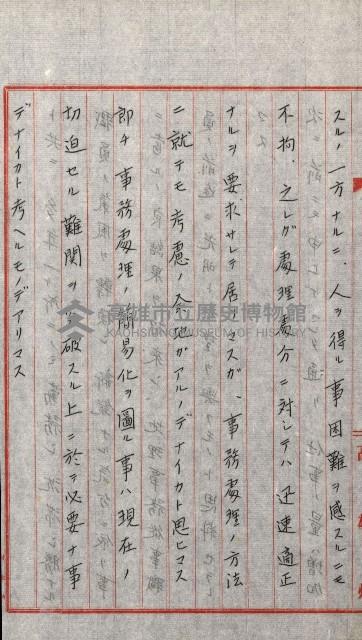 スルノ一方ナルニ、人ヲ得ル事困難ヲ感スルニモ
不拘、之レガ處理處分ニ対シテハ迅速適正
ナルヲ要求サレテ居リマスガ、事務處理ノ方法
ニ就テモ考慮ノ余地ガアルノデナイカト思ヒマス
即チ事務處理ノ簡易化ヲ圖ル事ハ現在ノ
切迫セル難関ヲ破スル上ニ於テ必要ナ事
デナイカト考ヘルモノデアリマス
高雄市立歷史博物館
KAOHSIUNG MUSEUM OF HISTORY